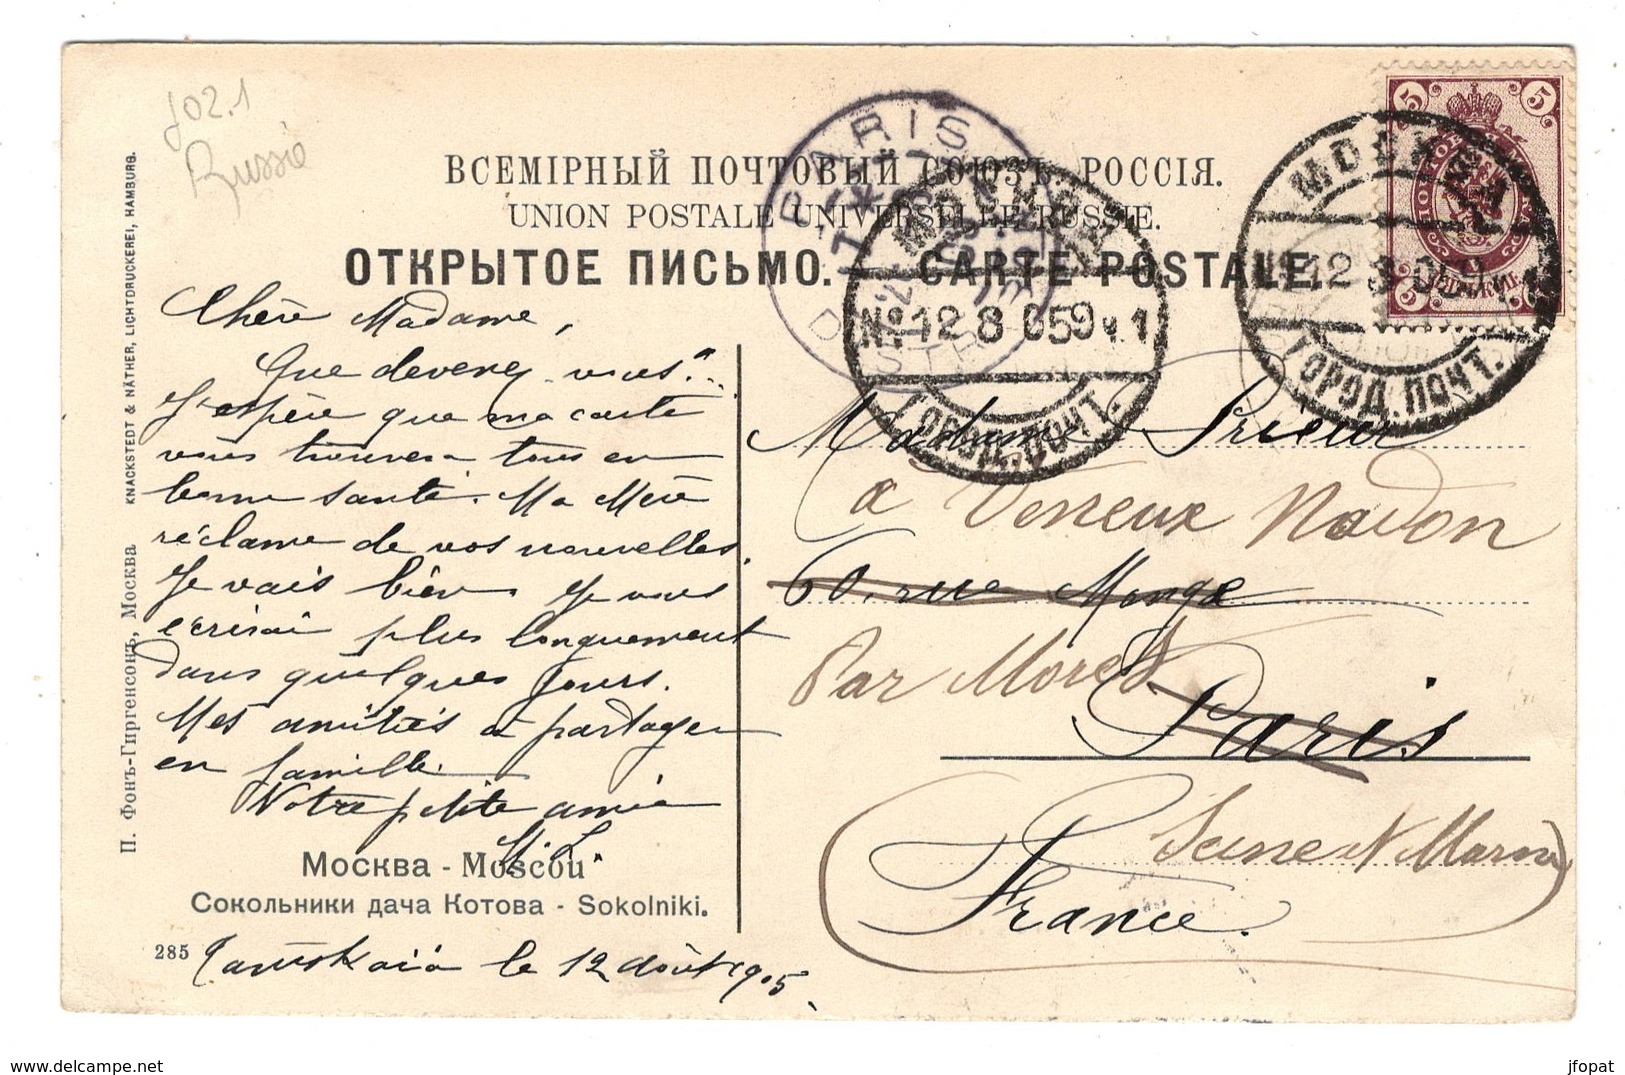 J02.1
Russie
ВСЕМІРНЫЙ ПОЧТОВЫЙ СОЮЗЪ. РОССІЯ.
UNION POSTALE UNIVERSELLE. RUSSIE.
ОТКРЫТОЕ ПИСЬМО. — CARTE POSTALE.
5 5
5 5
PARIS
DISTRIB
МОСКВА
№ 12 8 05 9 ч. 1
ГОРОД. ПОЧТ.
МОСКВА
12 8 05 9
ГОРОД. ПОЧТ.
Chère Madame,
Que devenez-vous?
J'espère que ma carte
vous trouvera tous en
bonne santé. Ma Mère
réclame de vos nouvelles.
Je vais bien. Je vous
écrirai plus longuement
dans quelques jours.
Mes amitiés à partager
en famille.
Votre petite amie
Madame Prieur
à Veneux Nadon
60, rue Monge
Par Moret
Paris
Seine et Marne
France.
Москва - Moscou
Сокольники дача Котова - Sokolniki.
285
le 12 août 1905
П. Фонъ-Гиргенсонъ, Москва
KNACKSTEDT & NÄTHER, LICHTDRUCKEREI, HAMBURG.
jfopat